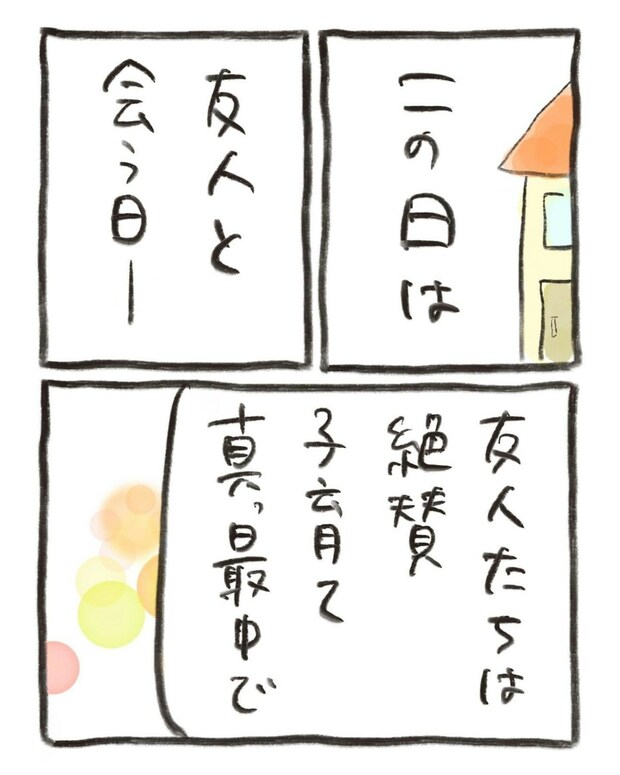 この日は
友人と
会う日ー
友人たちは
絶賛
子育て
真っ最中で